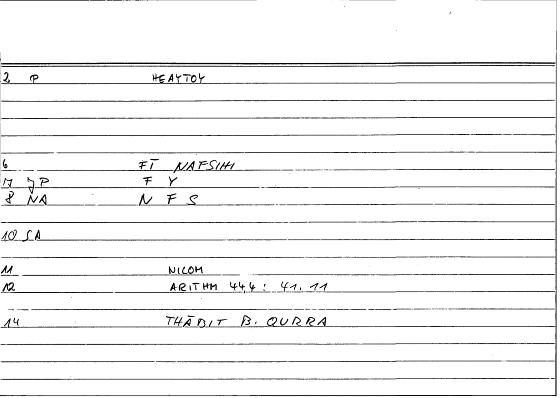 2 P HEAYTOY
6 FĪ NAFSIHI
17 JP F Y
8 NA N F S
10 SA
11 NICOM
12 ARITHM 444 : 41.11
14 THĀBIT B. QURRA